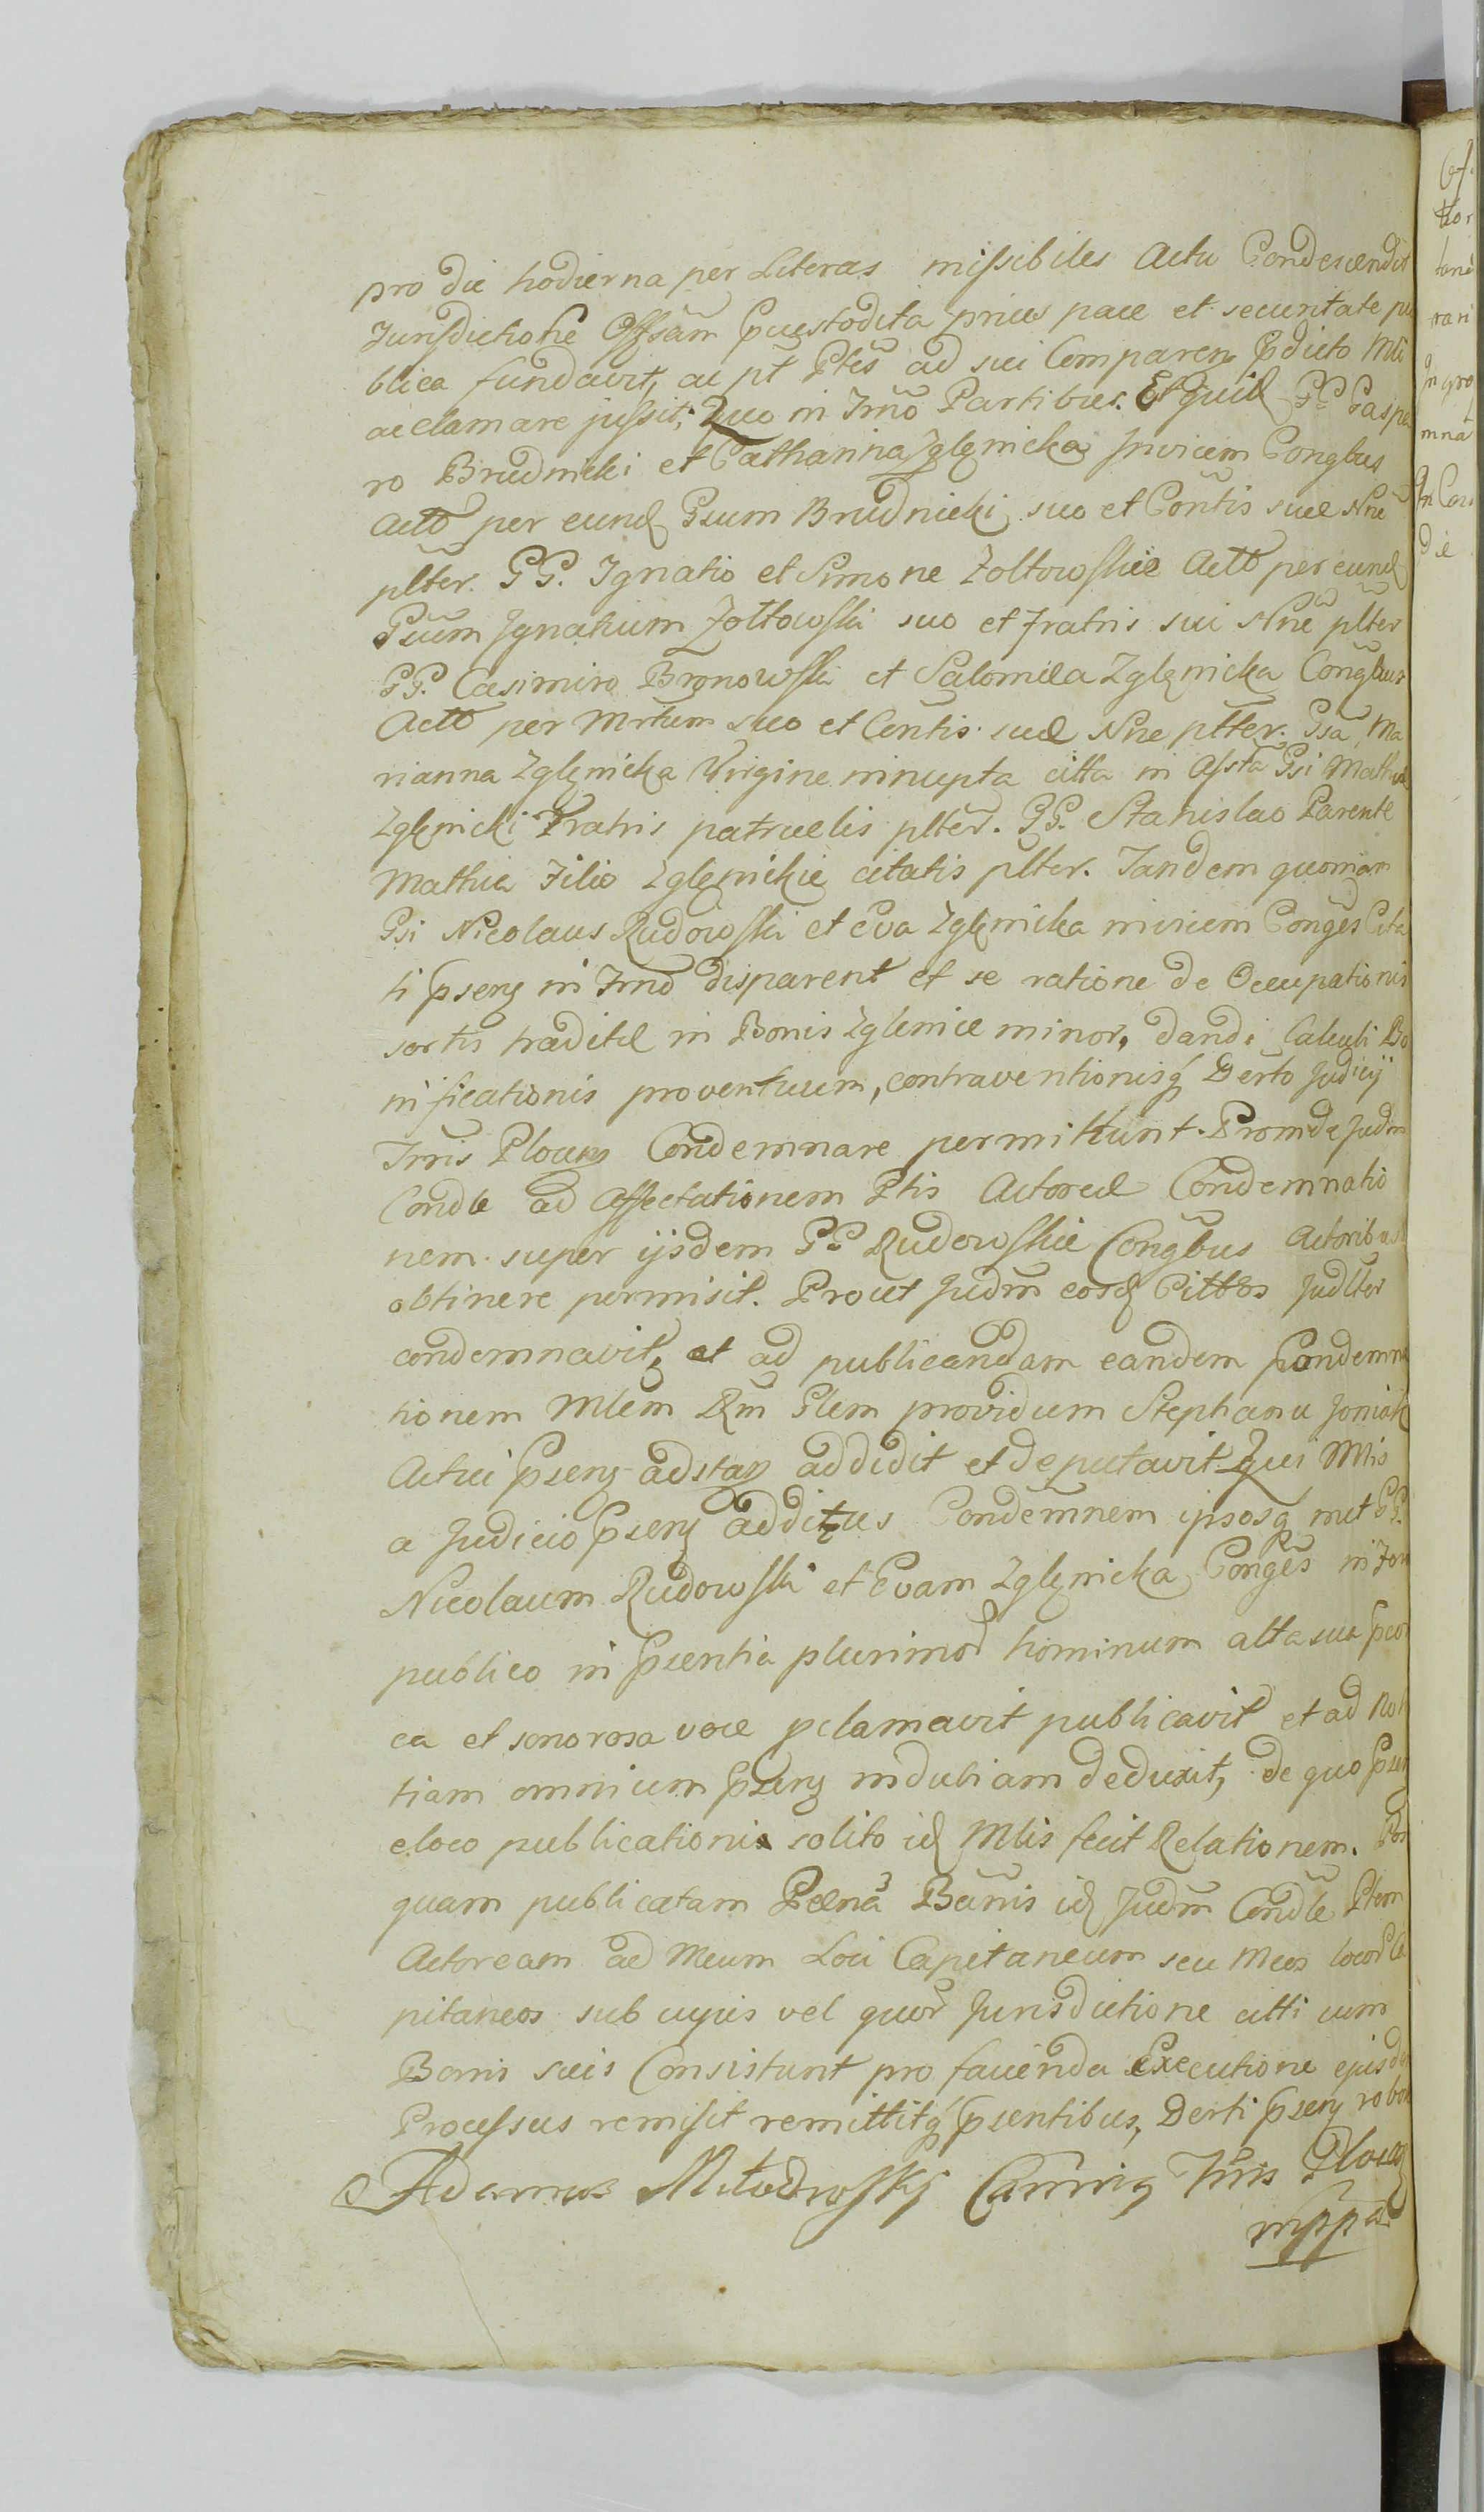 pro die hodierna per Literas missibiles Actu Condescendit
Jurisdictione Offsam Pcustodita prius pace et securitate pu
blica fundavit, ac pt Ptes ad sui Comparen Pdicto Mli
acclamare jussit; Quo in Trno Partibus. Et quid GG Caspa
ro Brudnicki et Catharina Zglęnicka Invicem Congbus
Actō per eund Gsum Brudnicki suo et Contis suæ Nne
plter. GG. Ignatio et Simone Zołtowskie Actō per eund
Gsum Ignatium Zołtowski suo et Fratris sui Nne plter
GG. Casimiro Bronowski et Salomea Zglęnicka Congbus
Actō per Mrtum suo et Contis suæ Nne plter. Gsa Ma
rianna Zglęnicka Virgine innupta citta in Assta Gsi Mathiæ
Zglęnicki Fratris patruelis plter. GG. Stanislao Parente
Mathia Filio Zglęnickie citatis plter. Tandem quoniam
Gsi Nicolaus Rudowski et Eva Zglęnicka invicem Conges Cita
ti Psens in Trno disparent et se ratione de Occupationis
sortis traditæ in Bonis Zglenice minor, dandi Calculi Bo
nificationis proventuum, contraventionisq Derto Judicij
Trris Plocens Condemnare permittunt. Proinde Judm
Condle ad Affectationem Ptis Actoreæ Condemnatio
nem super ijsdem GG Rudowskie Congbus Actoribus
obtinere permisit. Prout Judm eosd Cittos Judlter
condemnavit, et ad publicandam eandem Condemna
tionem Mlem Rm Glem providum Stephanu Joniak
Actui Psens adstan addidit et deputavit Qui Mlis
a Judicio Psens additus Condemnem ipsosq met GG.
Nicolaum Rudowski et Evam Zglęnicka Conges in For
publico in Psentia plurimor hominum alta sua
ca et sonorosa voce pclamavit publicavit et ad Noti
tiam omnium Psens indubiam deduxit, de quo Psens
eloco publicationis solito id Mlis fecit Relationem. Pos
quam publicatam Pœnā Bannis id Judm Condle Ptem
Actoream ad Mcum Loci Capitaneum seu Mcos locor Ca
pitaneos sub cujus vel quor Jurisdictione citti cum
Bonis suis Consistunt pro facienda Executione ejusd
Processus remisit remittitq Psentibus, Derti Psens robore
Adamus Miłodrowski Camrius Trris Plocens
mppa